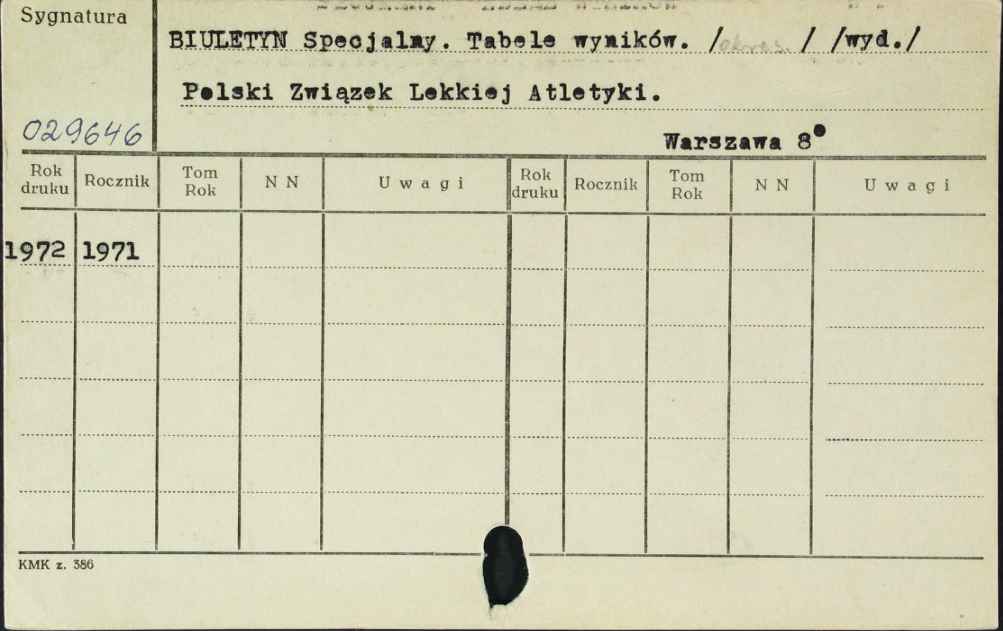 Sygnatura
BIULETYN Specjalny. Tabele wyników. / / /wyd./
Polski Związek Lekkiej Atletyki.
029646
Warszawa 8°
Rok druku Rocznik Tom Rok N N Uwagi Rok druku Rocznik Tom Rok N N Uwagi
1972 1971
KMK z. 386